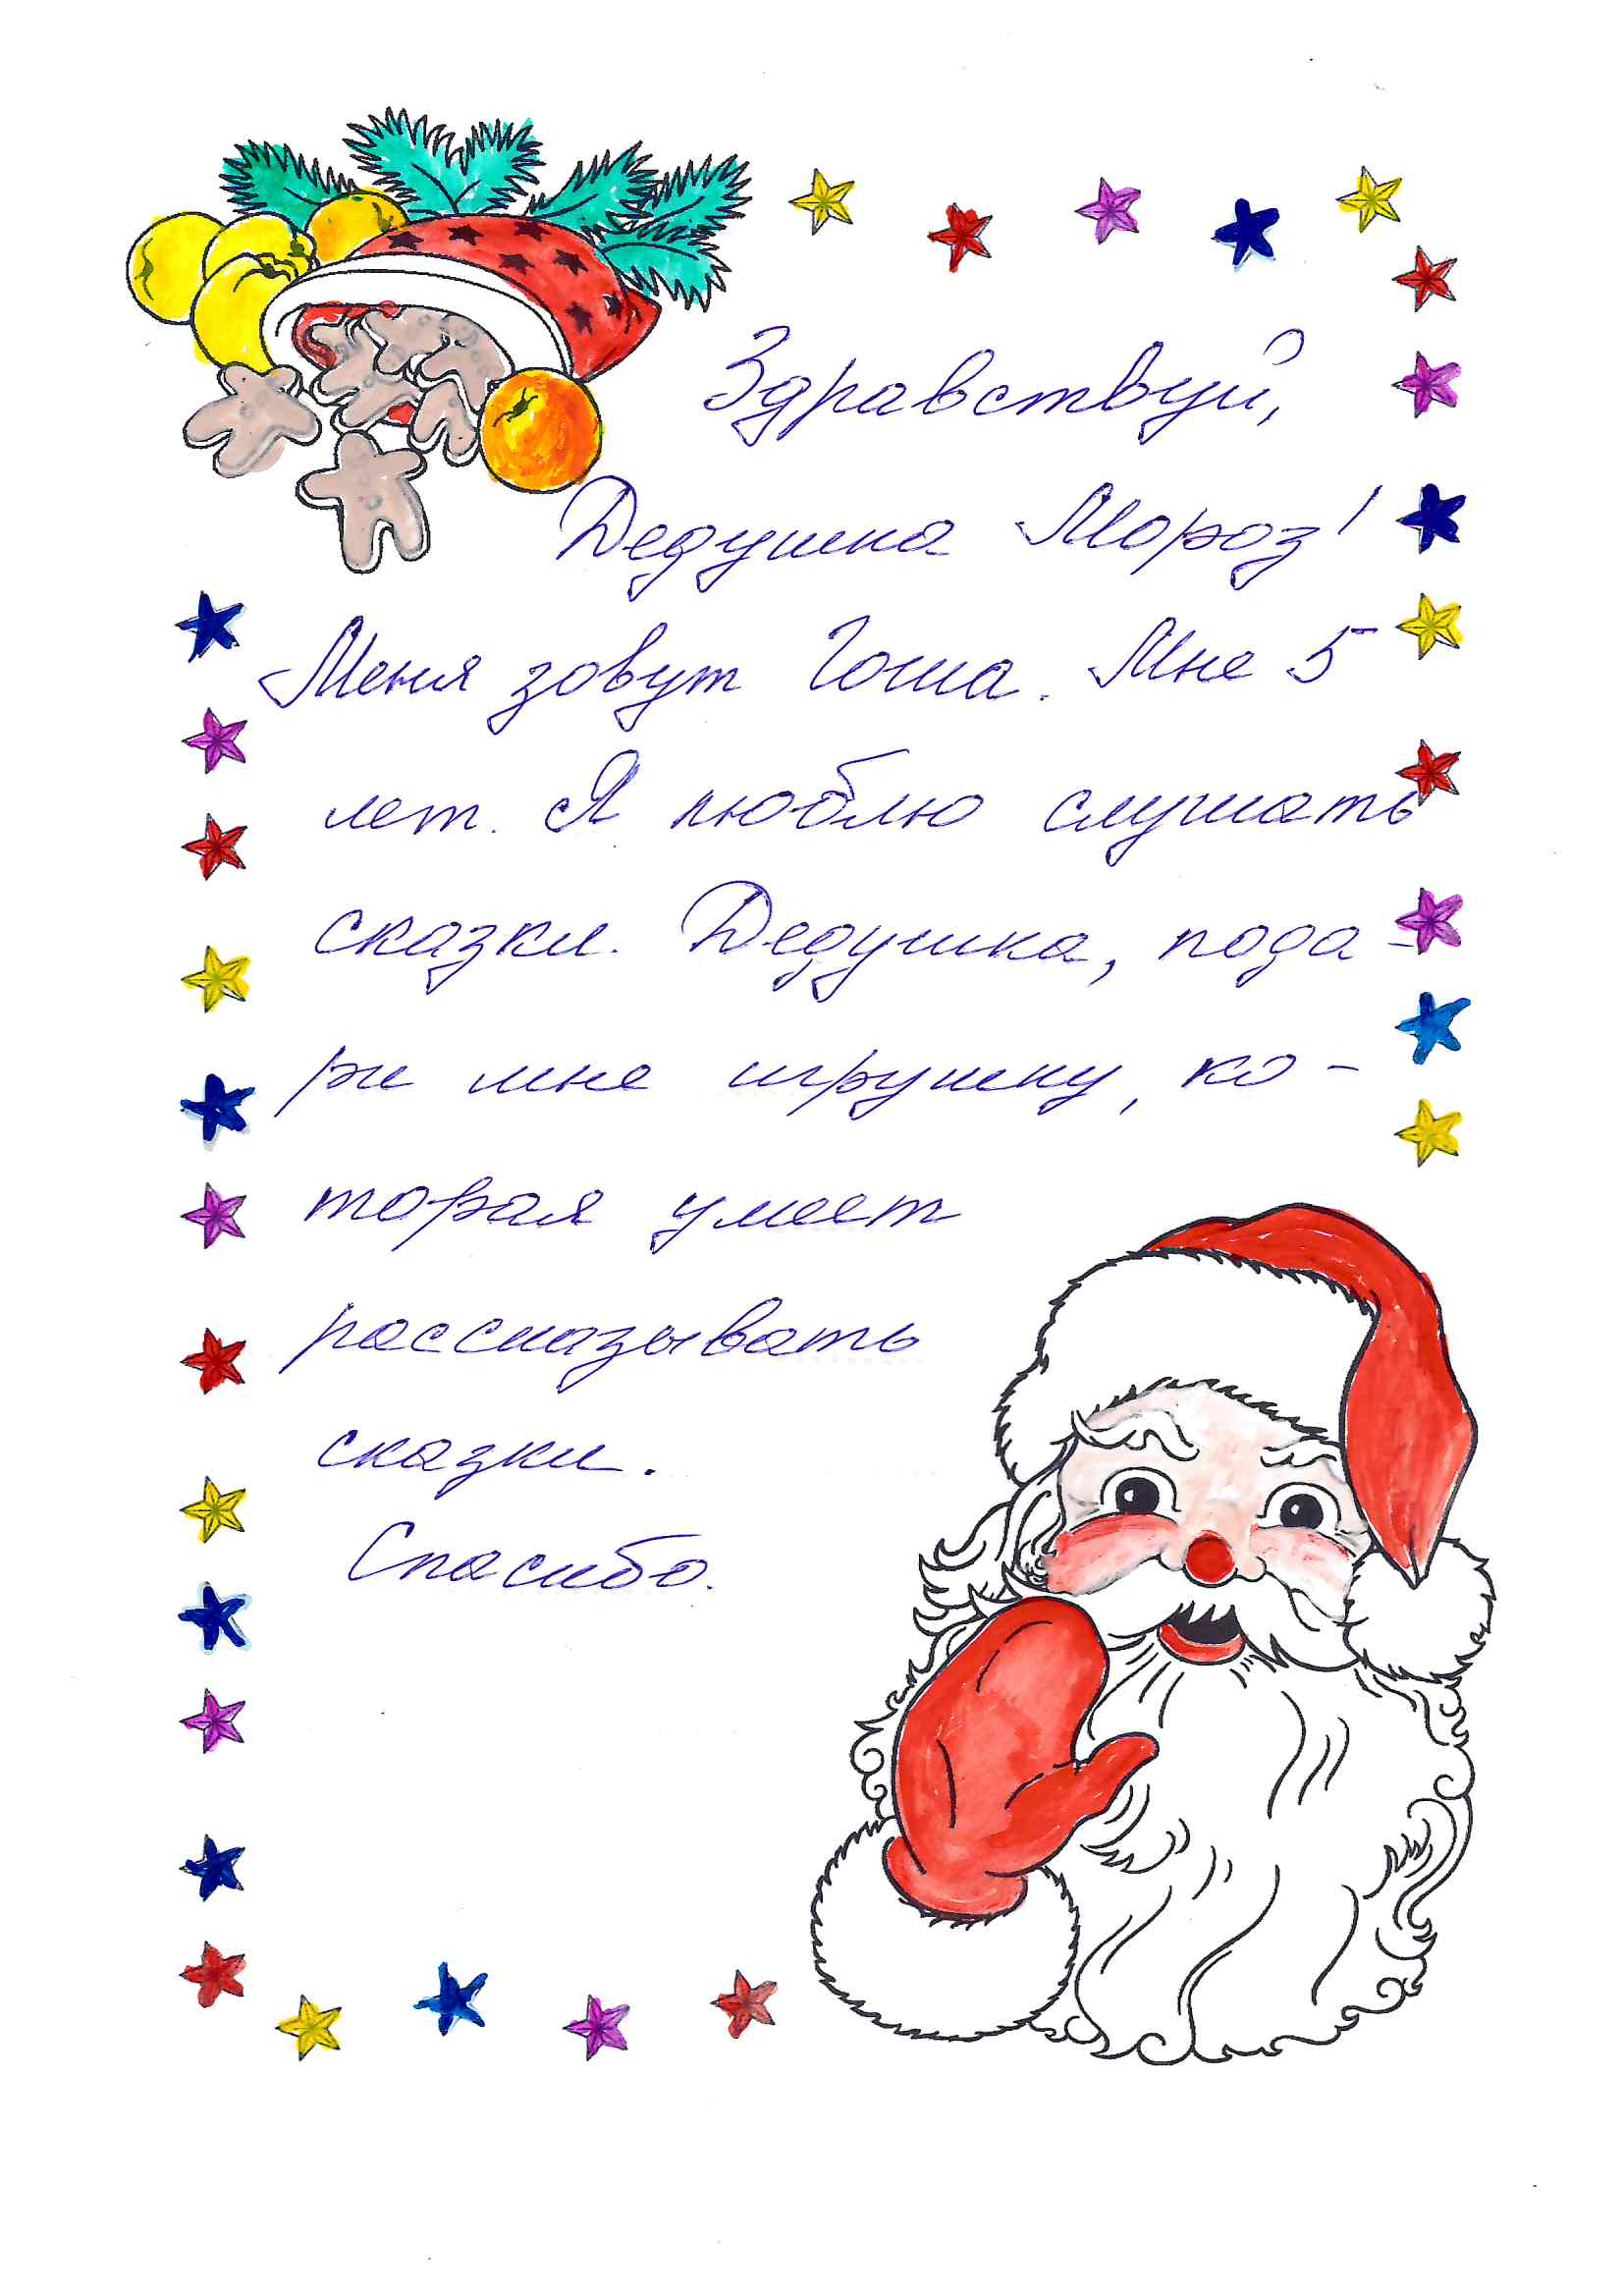 Здравствуй,
Дедушка Мороз!
Меня зовут Гоша. Мне 5
лет. Я люблю слушать
сказки. Дедушка, пода-
ри мне игрушку, ко-
торая умеет
рассказывать
сказки.
Спасибо.